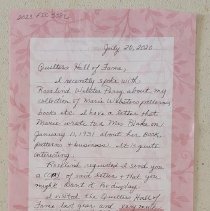 July 26, 2020
Quilters Hall of Fame,
I recently spoke with
Rosalind Webster Perry about my
collection of Marie Webster patterns
books etc. I have a letter that
Marie wrote to a Mrs
January 11, 1931 about her book,
patterns + business. It is quite
interesting.
Rosalind requested I send you
a copy of said letter + that you
might want it to display.
I visited the Quilters Hall of
Fame last year and very much